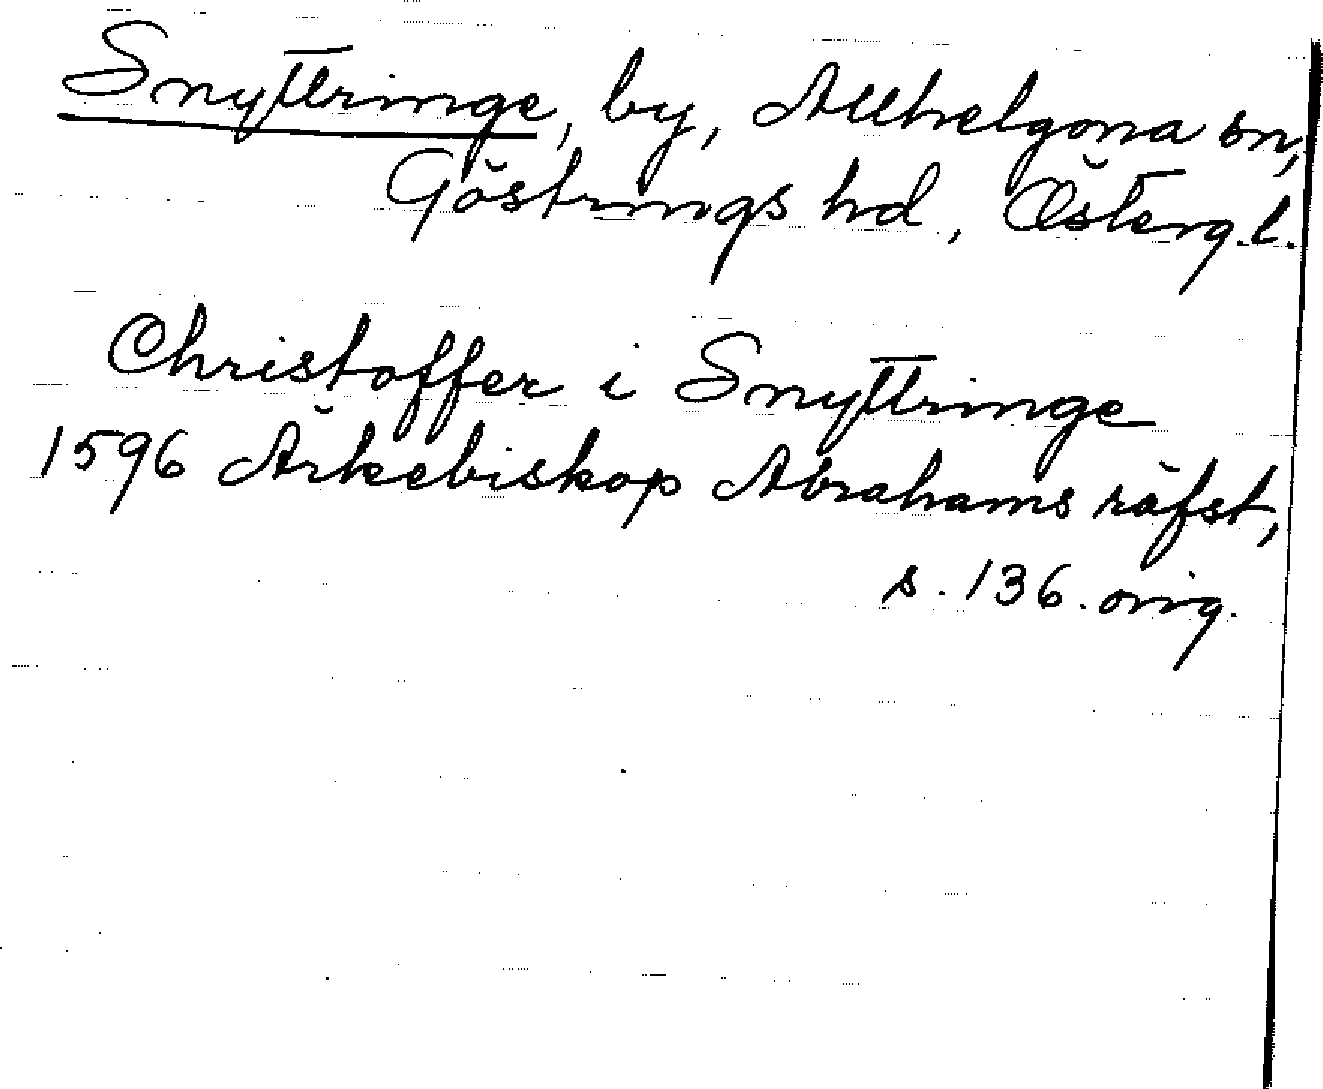 Snyttringe, by, Allhelgona sn,
Göstrings hd, Österg.l.
Christoffer i Snyttringe
1596 Ärkebiskop Abrahams räfst,
s. 136. orig.